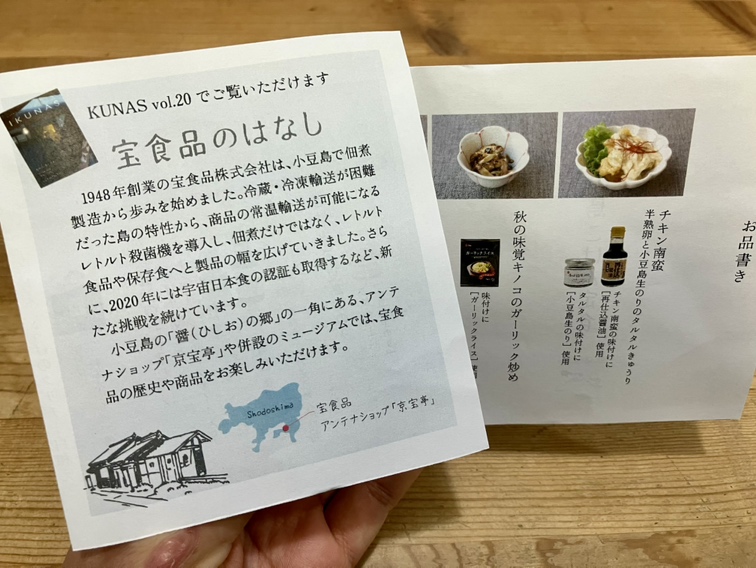 IKUNAS
KUNAS vol.20 でご覧いただけます
宝食品のはなし
1948年創業の宝食品株式会社は、小豆島で佃煮
製造から歩みを始めました。冷蔵・冷凍輸送が困難
だった島の特性から、商品の常温輸送が可能になる
レトルト殺菌機を導入し、佃煮だけではなく、レトルト
食品や保存食へと製品の幅を広げていきました。さら
に、2020年には宇宙日本食の認証も取得するなど、新
たな挑戦を続けています。
小豆島の「醤(ひしお)の郷」の一角にある、アンテ
ナショップ「京宝亭」や併設のミュージアムでは、宝食
品の歴史や商品をお楽しみいただけます。
Shodoshima
宝食品
アンテナショップ「京宝亭」
お品書き
チキン南蛮
半熟卵と小豆島生のりのタルタルきゅうり
チキン南蛮の味付けに
[再仕込醤油]使用
タルタルの味付けに
[小豆島生のり]使用
秋の味覚キノコのガーリック炒め
味付けに
[ガーリックライス]使
ガーリックライス